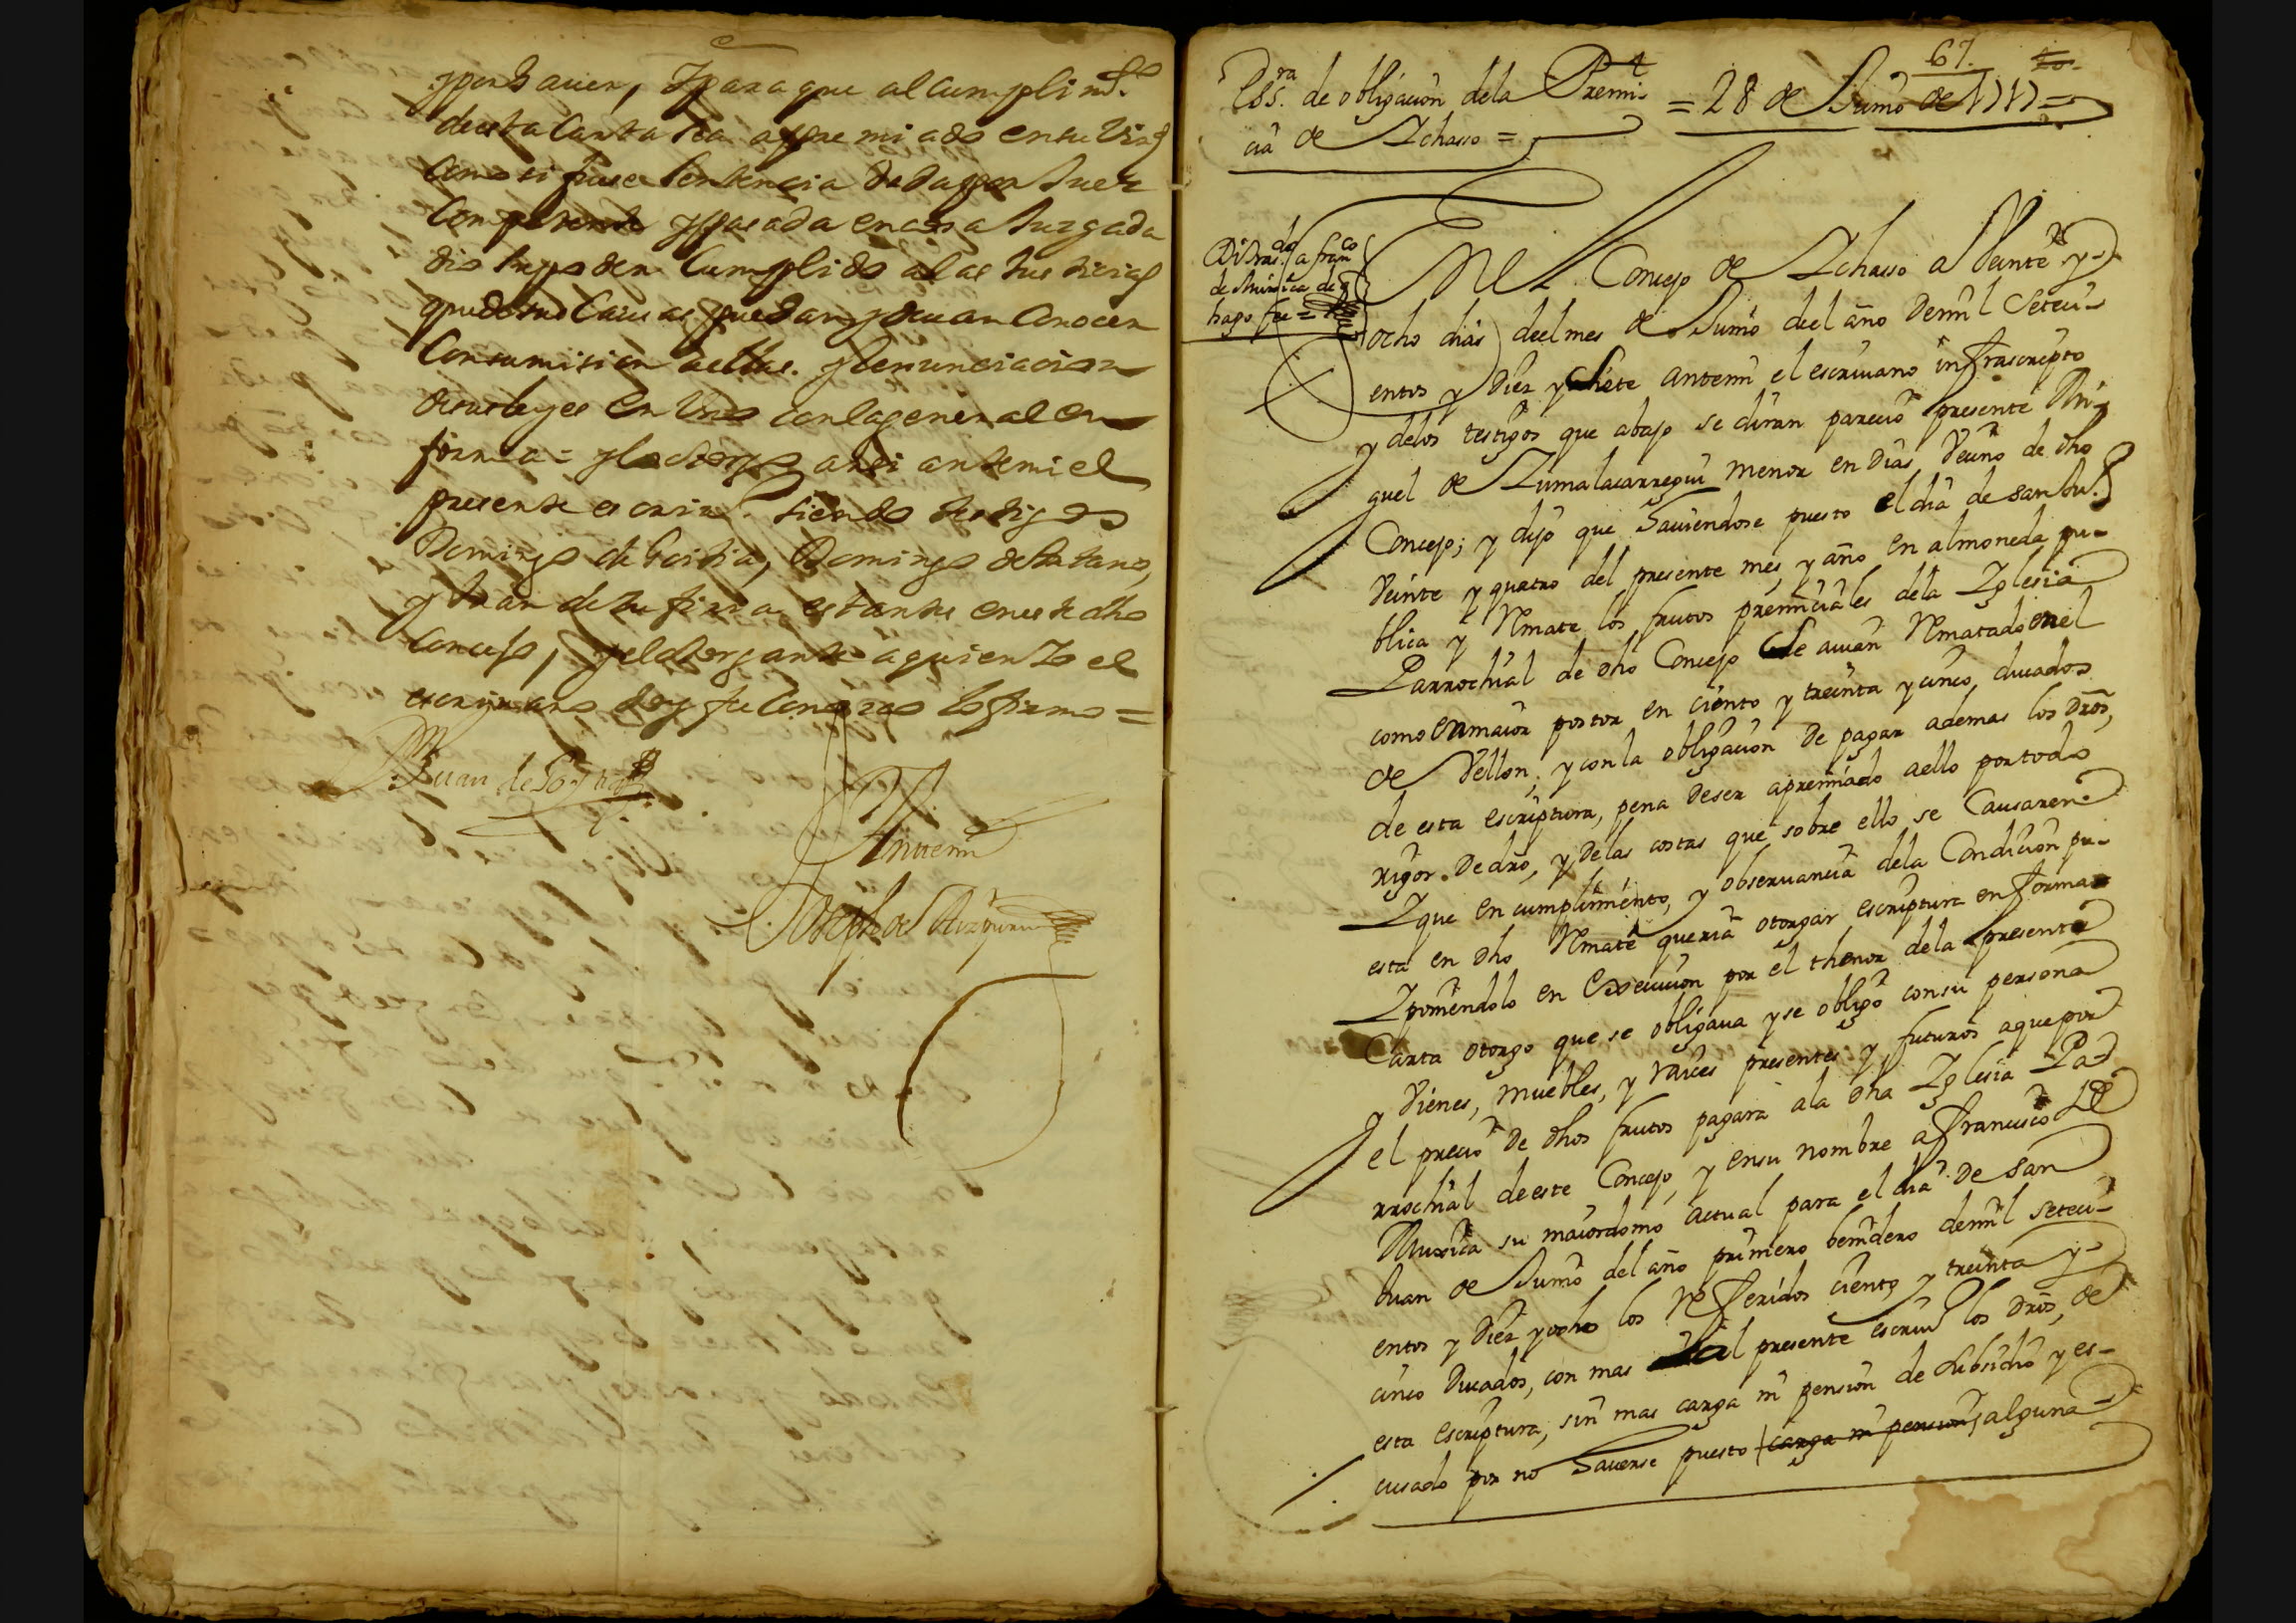 y por hauer, y para que al cumplimto
de esta Carta sea appremiado en su vida
Como si fuese sentencia dada por Juez
Competente y pasada en cosa Juzgada
dio su poder Cumplido a las Justicias
que de sus Causas puedan y deuan Conocer
Con sumision aellas. y Renunciacion
de sus leyes en Uno con la general en
forma = y lo otorgo assi ante mi el
presente escriuo. siendo testigos
Domingo de Goitia, Domingo de
y Juan de estante en este dho
Concejo, y el otorgante a quien Yo el
escriuano doy fee Conozco lo firmo =
Juan de
Ante mi
Joseph de
67.
Essra. de obligacion dela Premi-
cia de Ychasso =
= 28 de Junio de 1717 =
Di tras.do a franco
de Muxica de q
hago fee =
En el Concejo de Ychasso a Veinte y
ocho dias deel mes de Junio deel año de mil Seteci-
entos y diez y siete ante mi el escriuano infrascripto
y delos testigos que abajo se diran parecio presente Mi-
guel de Zumalacarregui menor en dias Vecino de dho
Concejo; y dijo que hauiendose puesto el dia de san Ju.
Veinte y quatro del presente mes y año en almoneda pu-
blica y Rmate los frutos premiciales dela Yglesia
Parrochial de dho Concejo se auian Rmatado en el
como en maior postor en ciento y treinta y cinco ducados
de Vellon, y con la obligacion de pagar ademas los dros,
de esta escriptura, pena de ser apremiado aello por todo
rigor de dro, y delas costas que sobre ello se Causaren
Y que en cumplimiento, y obseruancia dela Condicion pu-
esta en dho Rmate queria otorgar escriptura en forma
Y poniendolo en Execucion por el thenor dela presente
Carta otorgo que se obligaua y se obligo con su persona
y Vienes, muebles, y raices presentes y futuros a que por
el precio de dhos frutos pagara ala dha Yglesia Pa-
rrochial de este Concejo, y en su nombre a Francisco de
Muxica su maiordomo actual para el dia de San
Juan de Junio del año primero benidero de mil Seteci-
entos y diez y ocho los Referidos ciento y treinta y
cinco ducados, con mas al presente escriuo los dros, de
esta escriptura, sin mas carga ni pension de subsidio y es-
cusado por no hauerse puesto (carga ni pension) alguna